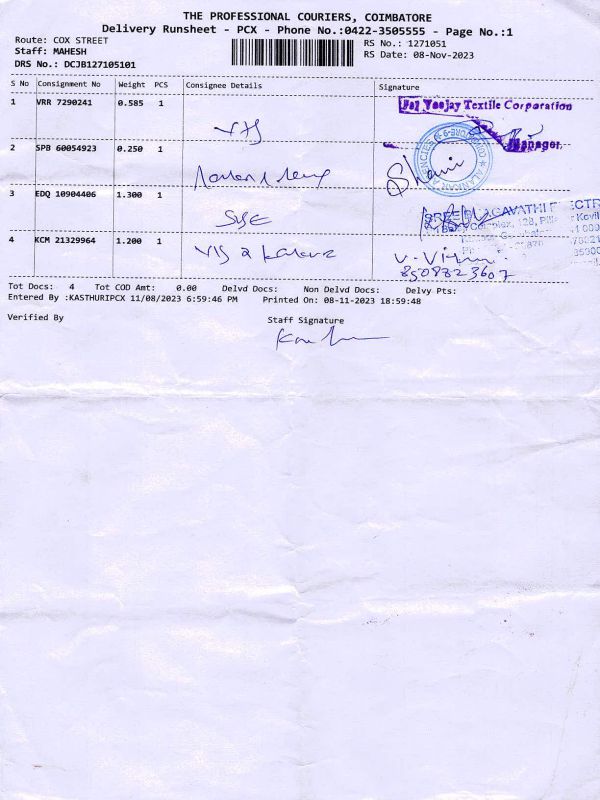 THE PROFESSIONAL COURIERS, COIMBATORE
Delivery Runsheet - PCX - Phone No.:0422-3505555 - Page No.:1
Route: COX STREET
RS No.: 1271051
Staff: MAHESH
RS Date: 08-Nov-2023
DRS No.: DCJB127105101
S No Consignment No Weight PCS Consignee Details Signature
1 VRR 7290241 0.585 1
Jai Veejay Textile Corporation
Manager
2 SPB 60054923 0.250 1
Shanni
3 EDQ 10904406 1.300 1
SREE BHAGAVATHI ELECTR
4 KCM 21329964 1.200 1
8508723607
Tot Docs: 4 Tot COD Amt: 0.00 Delvd Docs: Non Delvd Docs: Delvy Pts:
Entered By :KASTHURIPCX 11/08/2023 6:59:46 PM Printed On: 08-11-2023 18:59:48
Verified By Staff Signature